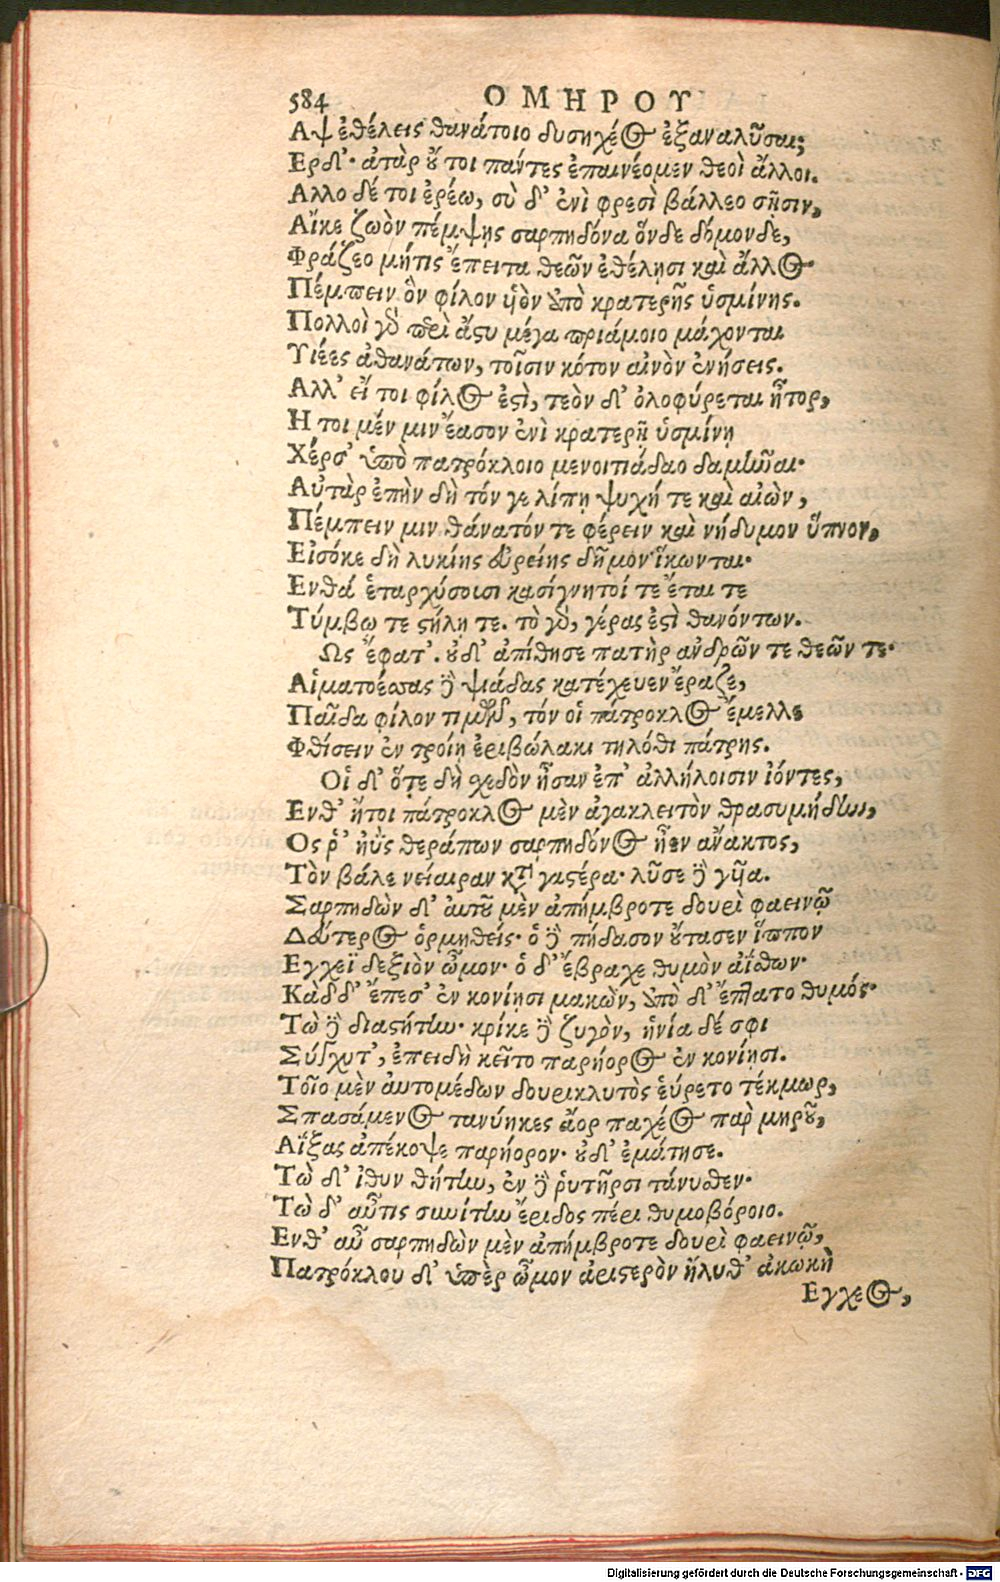 584 ΟΜΗΡΟΥ
Αψ ἐθέλεις θανάτοιο δυσηχέος ἐξαναλῦσαι;
Ερδ᾽· ἀτὰρ οὔ τοι πάντες ἐπαινέομεν θεοὶ ἄλλοι.
Αλλο δέ τοι ἐρέω, σὺ δ᾽ ἐνὶ φρεσὶ βάλλεο σῇσιν,
Αἴκε ζωὸν πέμψῃς σαρπηδόνα ὅνδε δόμονδε,
Φράζεο μήτις ἔπειτα θεῶν ἐθέλῃσι καὶ ἄλλος
Πέμπειν ὃν φίλον υἱὸν ἀπὸ κρατερῆς ὑσμίνης.
Πολλοὶ γὸ περὶ ἄστυ μέγα πριάμοιο μάχονται
Υἱέες ἀθανάτων, τοῖσιν κότον αἰνὸν ἐνήσεις.
Αλλ᾽ εἴ τοι φίλος ἐστὶ, τεὸν δ᾽ ὀλοφύρεται ἦτορ,
Η τοι μέν μιν ἔασον ἐνὶ κρατερῇ ὑσμίνῃ
Χέρσ᾽ ὑπὸ πατρόκλοιο μενοιτιάδαο δαμῆναι·
Αὐτὰρ ἐπὴν δὴ τόν γε λίπῃ ψυχή τε καὶ αἰών,
Πέμπειν μιν θάνατόν τε φέρειν καὶ νήδυμον ὕπνον,
Εἰσόκε δὴ λυκίης εὐρείης δῆμον ἵκωνται·
Ενθά ἑταρχύσουσι κασίγνητοί τε ἔται τε
Τύμβῳ τε στήλῃ τε. τὸ γὸ, γέρας ἐστὶ θανόντων.
Ως ἔφατ᾽. οὐδ᾽ ἀπίθησε πατὴρ ἀνδρῶν τε θεῶν τε·
Αἱματοέσσας δὲ ψιάδας κατέχευεν ἔραζε,
Παῖδα φίλον τιμῶν, τόν οἱ πάτροκλος ἔμελλε
Φθίσειν ἐν τροίῃ ἐριβώλακι τηλόθι πάτρης.
Οἱ δ᾽ ὅτε δὴ σχεδὸν ἦσαν ἐπ᾽ ἀλλήλοισιν ἰόντες,
Ενθ᾽ ἤτοι πάτροκλος μὲν ἀγακλειτὸν θρασυμήδην,
Ος ῥ᾽ ἠῢς θεράπων σαρπηδόνος ἦεν ἄνακτος,
Τὸν βάλε νείαιραν κατὰ γαστέρα· λῦσε δὲ γυῖα.
Σαρπηδὼν δ᾽ αὐτοῦ μὲν ἀπήμβροτε δουρὶ φαεινῷ
Δεύτερος ὁρμηθείς· ὁ δὲ πήδασον οὔτασεν ἵππον
Εγχεϊ δεξιὸν ὦμον· ὁ δ᾽ ἔβραχε θυμὸν ἀΐσθων·
Κὰδ δ᾽ ἔπεσ᾽ ἐν κονίῃσι μακών, ἀπὸ δ᾽ ἔπτατο θυμός·
Τὼ δὲ διαστήτην· κρίκε δὲ ζυγὸν, ἡνία δέ σφι
Σύγχυτ᾽, ἐπειδὴ κεῖτο παρήορος ἐν κονίῃσι.
Τοῖο μὲν αὐτομέδων δουρικλυτὸς εὕρετο τέκμωρ,
Σπασάμενος τανύηκες ἄορ παχέος παρὰ μηροῦ,
Αΐξας ἀπέκοψε παρήορον· οὐδ᾽ ἐμάτησε.
Τὼ δ᾽ ἰθυνθήτην, ἐν δὲ ῥυτῆρσι τάνυσθεν·
Τὼ δ᾽ αὖτις συνίτην ἔριδος πέρι θυμοβόροιο.
Ενθ᾽ αὖ σαρπηδὼν μὲν ἀπήμβροτε δουρὶ φαεινῷ,
Πατρόκλου δ᾽ ὑπὲρ ὦμον ἀριστερὸν ἤλυθ᾽ ἀκωκὴ
Εγχεος,
Digitalisierung gefördert durch die Deutsche Forschungsgemeinschaft - DFG